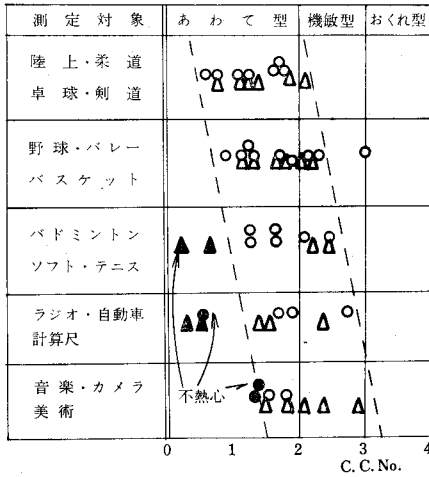 測定対象 あわて型 機敏型 おくれ型
陸上・柔道
卓球・剣道
野球・バレー
バスケット
バドミントン
ソフト・テニス
ラジオ・自動車
計算尺
音楽・カメラ
美術
不熱心
0 1 2 3 4
C.C.No.